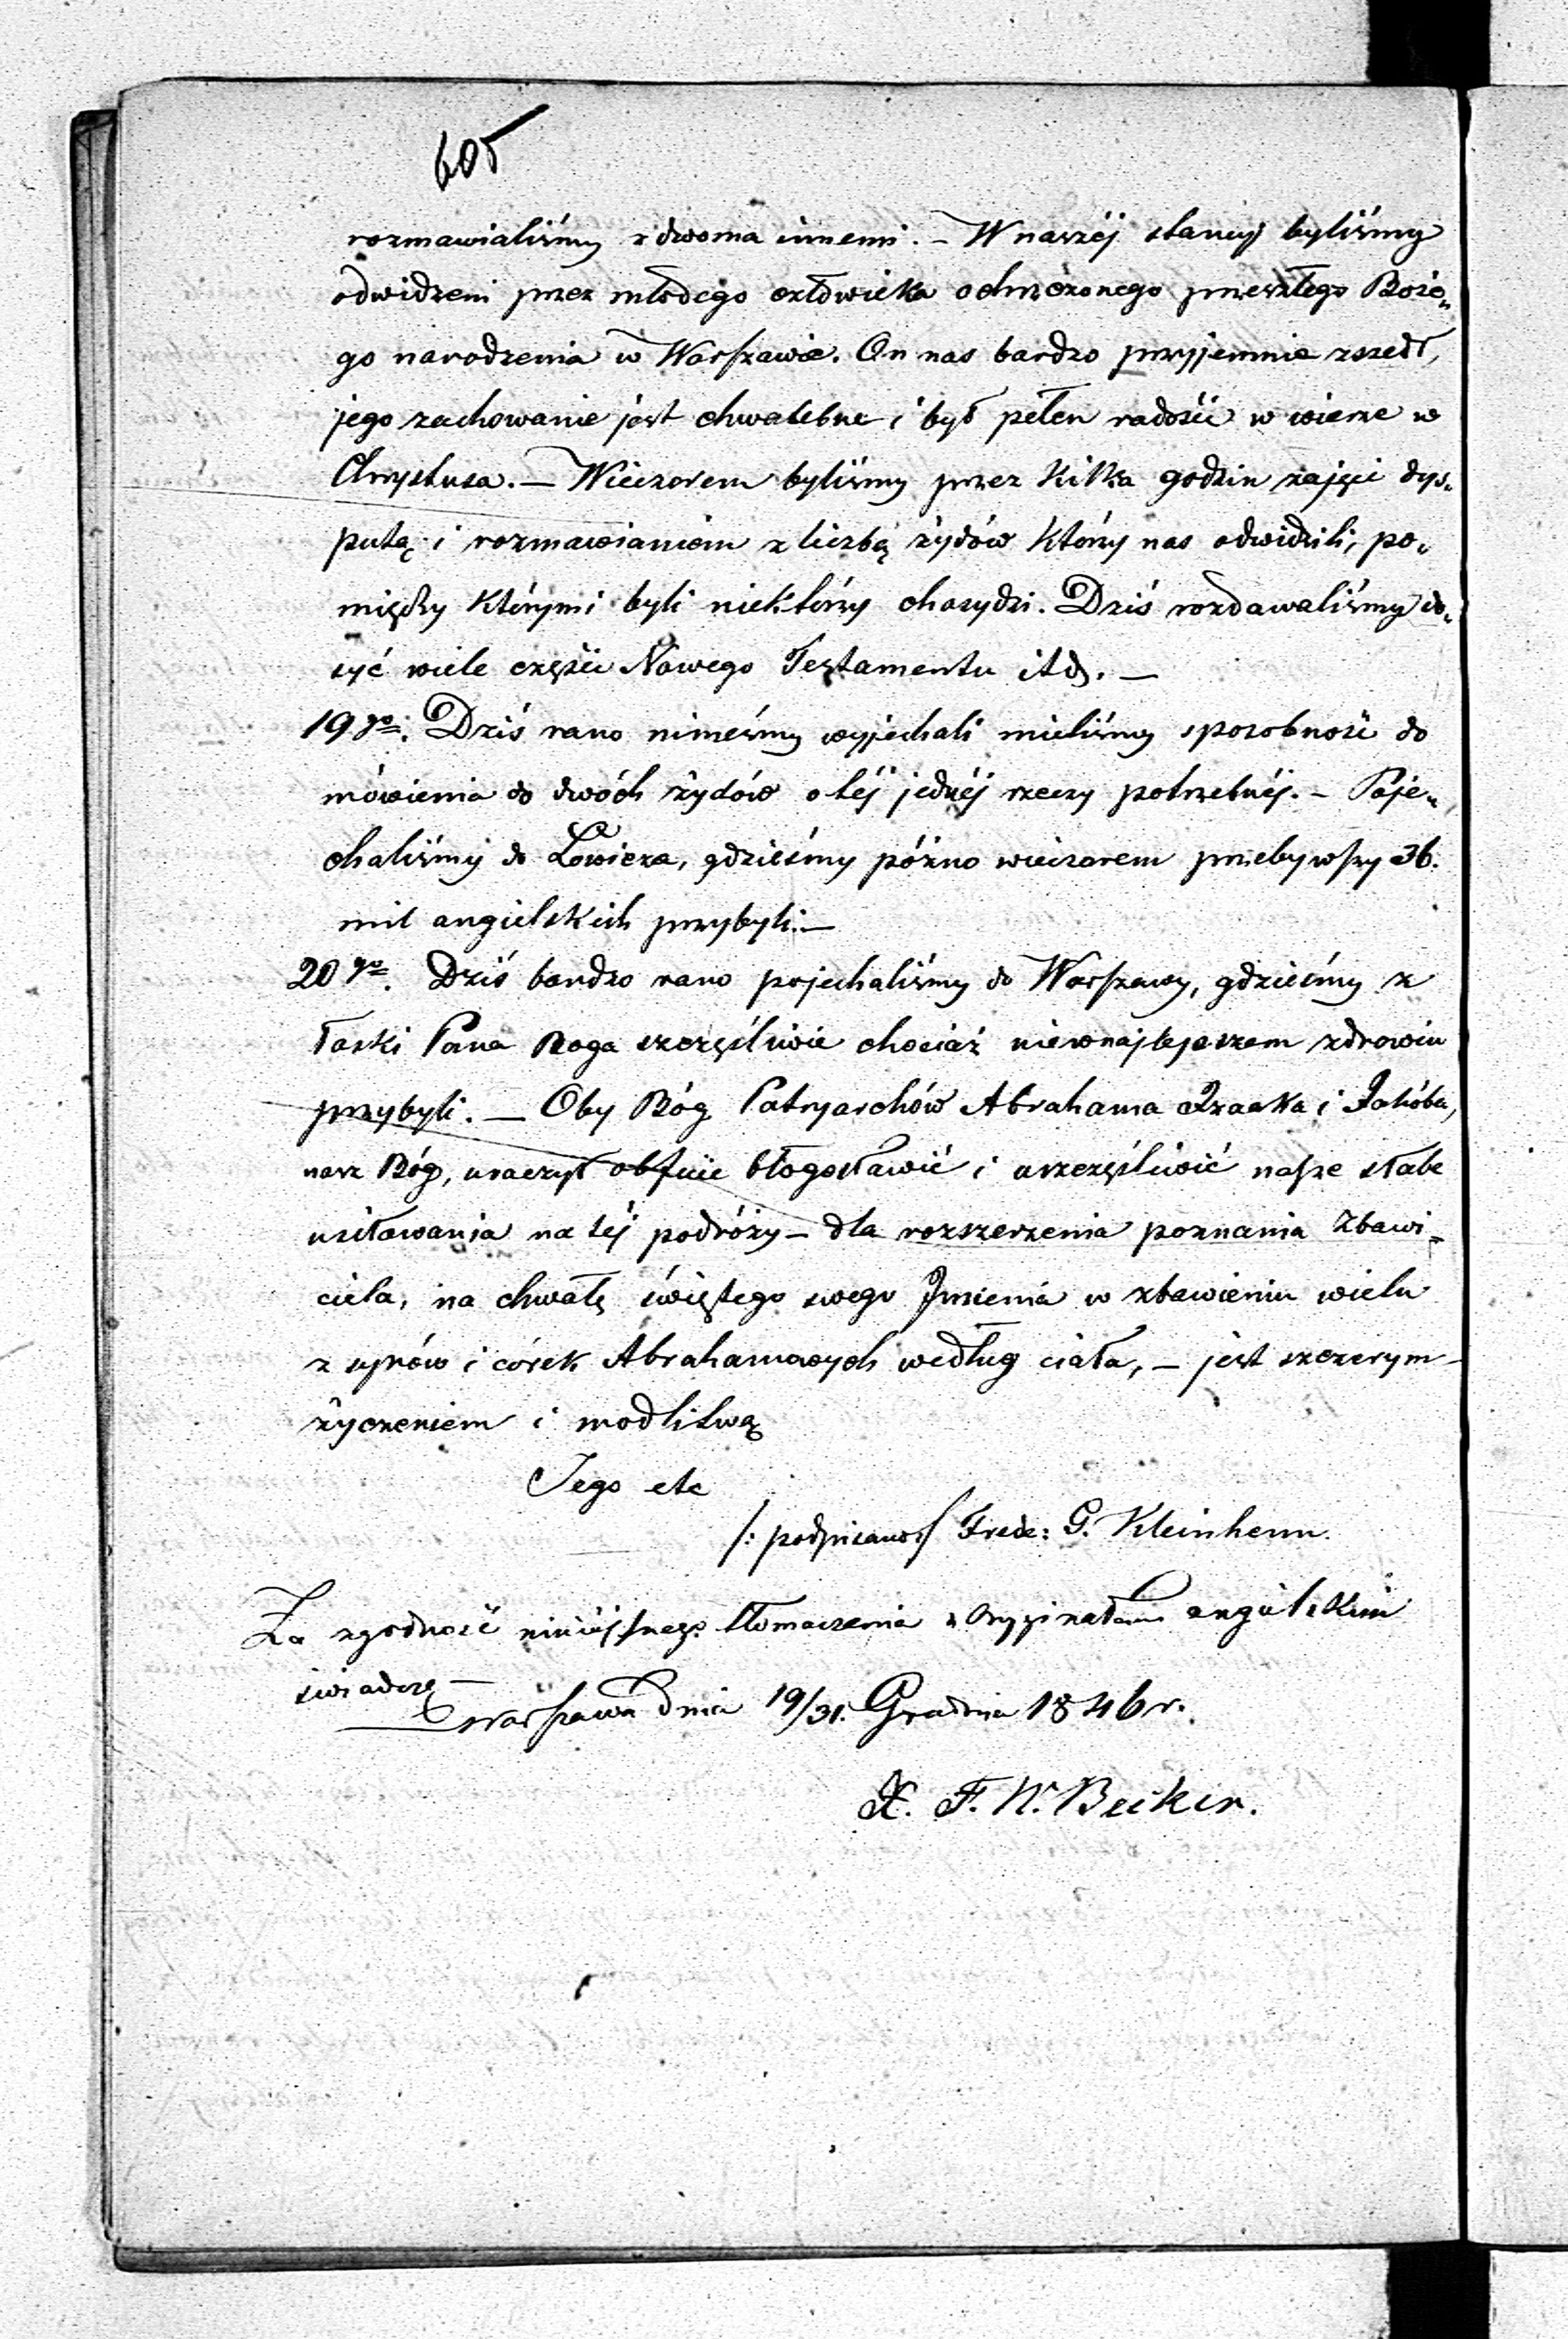 605
rozmawialiśmy z dwoma innemi. – W naszéj stancyj byliśmy
odwidzeni przez młodego człowieka ochrzczonego przeszłego Boże„
go narodzenia w Warszawie. On nas bardzo przyjemnie zszedł,
jego zachowanie jest chwalebne i był pełen radości w wierze w
Chrystusa. — Wieczorem byliśmy przez kilka godzin zajęci dys„
putą i rozmawianiem z liczbą żydów którzy nas odwidzili, po„
między którymi byli niektórzy chasydzi. Dziś rozdawaliśmy do„
syć wiele części Nowego Testamentu itd. —
19go. Dziś rano nimeśmy wyjechali mieliśmy sposobność do
mówienia do dwóch żydów o téj jednéj rzeczy potrzebnéj. – Poje„
chaliśmy do Łowicza, gdzieśmy późno wieczorem przebywszy 36.
mil angielskich przybyli. —
20go. Dziś bardzo rano pojechaliśmy do Warszawy, gdzieśmy z
łaski Pana Boga szczęśliwie chociaż niewnajlepszem zdrowiu
przybyli. — Oby Bóg Patryarchów Abrahama Izaaka i Jakóba,
nasz Bóg, uraczył obficie błogosławić i uszczęśliwić nasze słabe
usiłowania na téj podróży – dla rozszerzenia poznania Zbawi„
ciela, na chwałę świętego swego Imienia w zbawieniu wielu
z synów i córek Abrahamowych według ciała, – jest szczerym
życzeniem i modlitwą
Jego etc
/: podpisano :/ Frede: G. Kleinhenn.
Za zgodność niniejszego tłomaczenia z Oryginałem angielskim
świadczę —
Warszawa dnia 19/31. Grudnia 1846 r.
X. F. W. Becker.